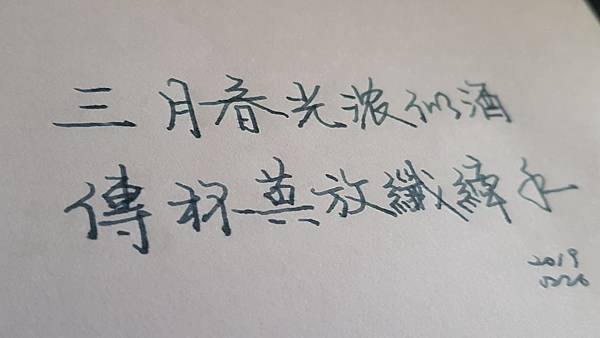 三月春光浓似酒
傳杯莫放纖手
2019
1226